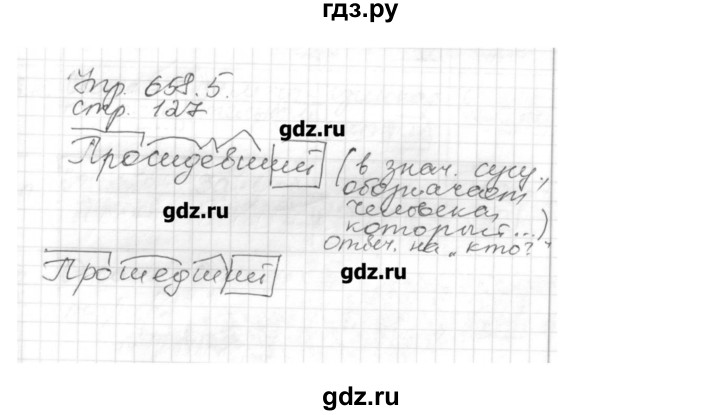 гдз.ру
Упр. 658.5.
стр. 127
gdz.ru
Просидевший (в знач. сущ.,
обозначает
gdz.ru
человека,
который...)
отвеч. на „кто?"
Прошедший
gdz.ru
gdz.ru